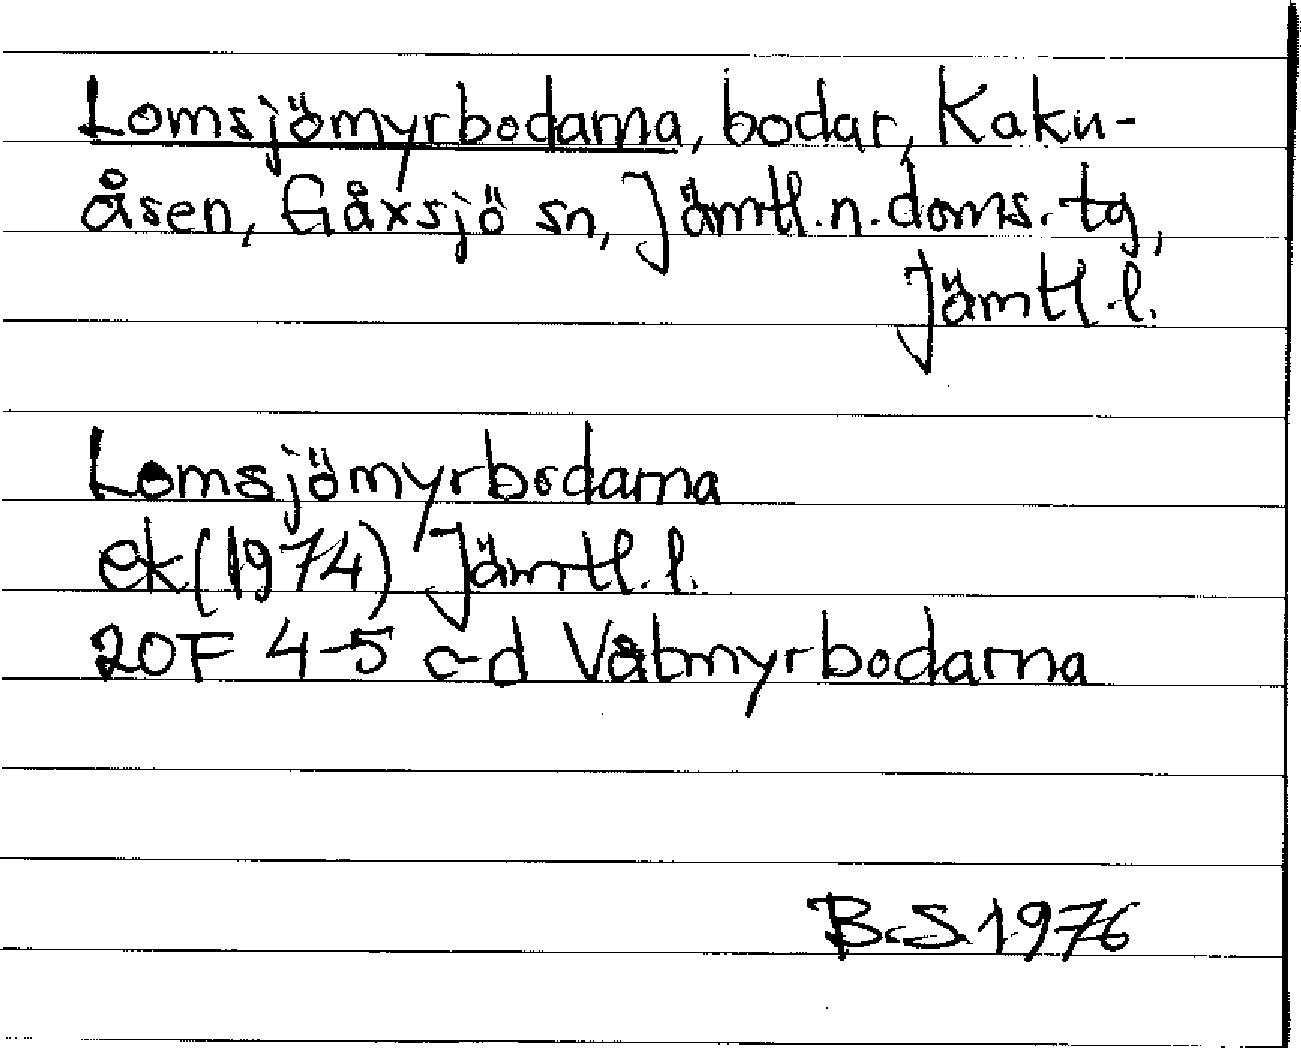 Lomsjömyrbodarna, bodar, Kaku-
åsen, Gåxsjö sn, Jämtl.n.doms.tg,
Jämtl.l.
Lomsjömyrbodarna
ek(1974) Jämtl.l.
20F 4-5 c-d Våtmyrbodarna
B.S.1976